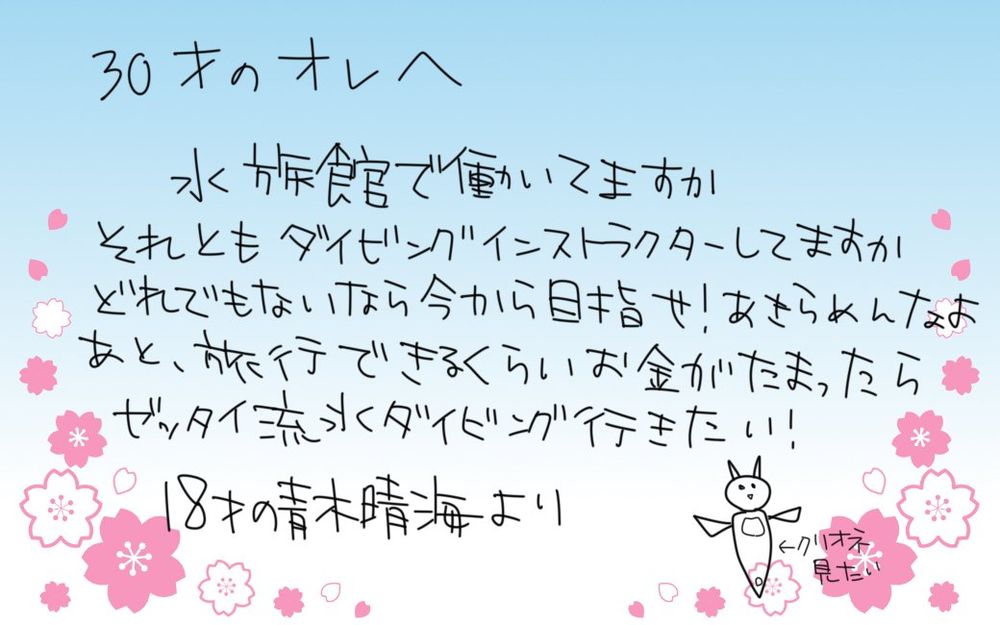 30才のオレへ
水族館で働いてますか
それともダイビングインストラクターしてますか
どれでもないなら今から目指せ!あきらめんなよ
あと、旅行できるくらいお金がたまったら
ゼッタイ流氷ダイビング行きたい!
18才の青木晴海より
←クリオネ
見たい